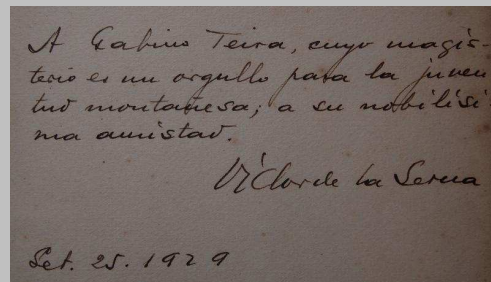 A Gabino Teira, cuyo magis-
terio es un orgullo para la juven
tud montañesa; a su nobilísi
ma amistad.
Víctor de la Serna
Set. 25. 1929